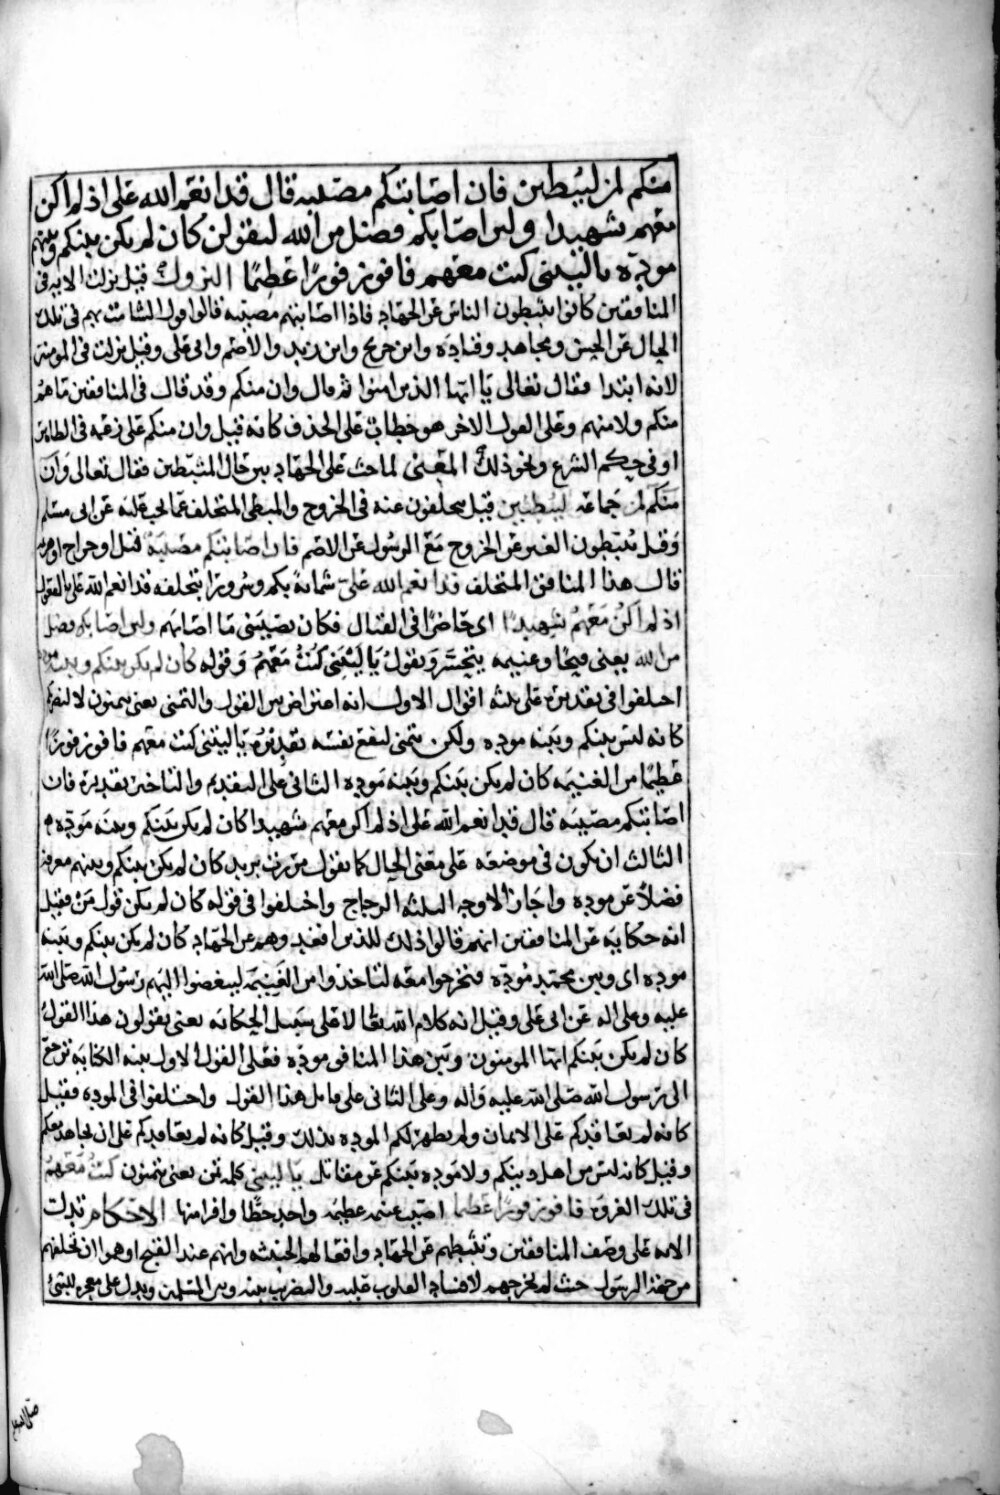 منكم لمن ليبطئن فان اصابتكم مصيبة قال قد انعم الله على اذ لم اكن
معهم شهيدا ولئن اصابكم فضل من الله ليقولن كان لم يكن بينكم وبينه
مودة يا ليتني كنت معهم فافوز فوزا عظيما النزول قيل نزلت الاية في
المنافقين كانوا يثبطون الناس عن الجهاد فاذا اصابتهم مصيبة قالوا قول الشامت بهم في تلك
الحال عن الحسن ومجاهد وقتادة وابن جريج وابن زيد والاصم وابي علي وقيل نزلت في المومنين
لانه ابتدا فقال تعالى يا ايها الذين امنوا ثم قال وان منكم وقد قال في المنافقين ما هم
منكم ولا منهم وعلى القول الاخر هو خطاب على الحذف كانه قيل وان منكم على زعمه في الظاهر
او في حكم الشرع ونحو ذلك المعنى لما حث على الجهاد بين حال المثبطين فقال تعالى وان
منكم لمن جماعة ليبطئن قيل يتخلفون عنه في الخروج والمبطئ المتخلف عما يجب عليه عن ابي مسلم
وقيل يثبطون الغير عن الخروج مع الرسول عن الاصم فان اصابتكم مصيبة قتل او جراح او هزيمة
قال هذا المنافق المتخلف قد انعم الله على شماتة بكم وسرورا بتخلفه قد انعم الله علي بالقعود
اذ لم اكن معهم شهيدا اي حاضرا في القتال فكان يصيبني ما اصابهم ولئن اصابكم فضل
من الله يعني فتحا وغنيمة يتحسر ويقول يا ليتني كنت معهم وقوله كان لم يكن بينكم وبينه مودة
اختلفوا في تقديره على ثلثة اقوال الاول انه اعتراض بين القول والتمني يعني يتمنون لا لنصرتكم
كانه ليس بينكم وبينه مودة ولكن يتمنى لنفع نفسه تقديره يا ليتني كنت معهم فافوز فوزا
عظيما من الغنيمة كان لم يكن بينكم وبينه مودة الثاني على التقديم والتاخير تقديره فان
اصابتكم مصيبة قال قد انعم الله على اذ لم اكن معهم شهيدا كان لم يكن بينكم وبينه مودة
الثالث ان يكون في موضعه على معنى الحال كما تقول مررت بزيد كان لم يكن بينكم وبينهم معرفة
فضلا عن مودة واجاز الاوجه الثلثة الزجاج واختلفوا في قوله كان لم يكن قول من فقيل
انه حكاية عن المنافقين انهم قالوا ذلك للذين اقعدوهم عن الجهاد كان لم يكن بينكم وبينه
مودة اي وبين محمد مودة فتخرجوا معه لتاخذوا من الغنيمة ليبغضوا اليهم رسول الله صلى الله
عليه وعلى اله عن ابي علي وقيل انه كلام الله تعالى لا على سبيل الحكاية يعني يقولون هذا القول
كان لم يكن بينكم ايها المومنون وبين هذا المنافق مودة فعلى القول الاول بينه الكناية ترجع
الى رسول الله صلى الله عليه واله وعلى الثاني على قايل هذا القول واختلفوا في المودة فقيل
كانه لم يعاقدكم على الايمان ولم يظهر لكم المودة بذلك وقيل كانه لم يعاقدكم على ان يجاهد معكم
وقيل كانه ليس من اهل دينكم ولا مودة بينكم عن مقاتل يا ليتني كلمة تمن يعني يتمنون كنت معهم
في تلك الغزوة فافوز فوزا عظيما اصيب غنيمة عظيمة واخذ حظا وافرا منها الاحكام تدل
الاية على وصف المنافقين وتثبيطهم عن الجهاد وافعالهم الخبيثة وانهم عند الفتح اوهموا ان تخلفهم
من جهة الرسول حيث لم يخرجهم لافساد القلوب عليه والتضريب بينه وبين المسلمين ويدل على معجزة للنبي
صلى الله عليه